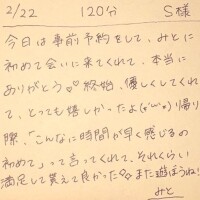 2/22 120分 S様
今日は事前予約をして、みとに
初めて会いに来てくれて、本当に
ありがとう♡♡ 終始、優しくしてくれ
て、とっても嬉しかったよ(*˘︶˘*) 帰り
際、「こんなに時間が早く感じるの
初めて」って言ってくれて、それくらい
満足して貰えて良かった♡ また遊ぼうね!
みと